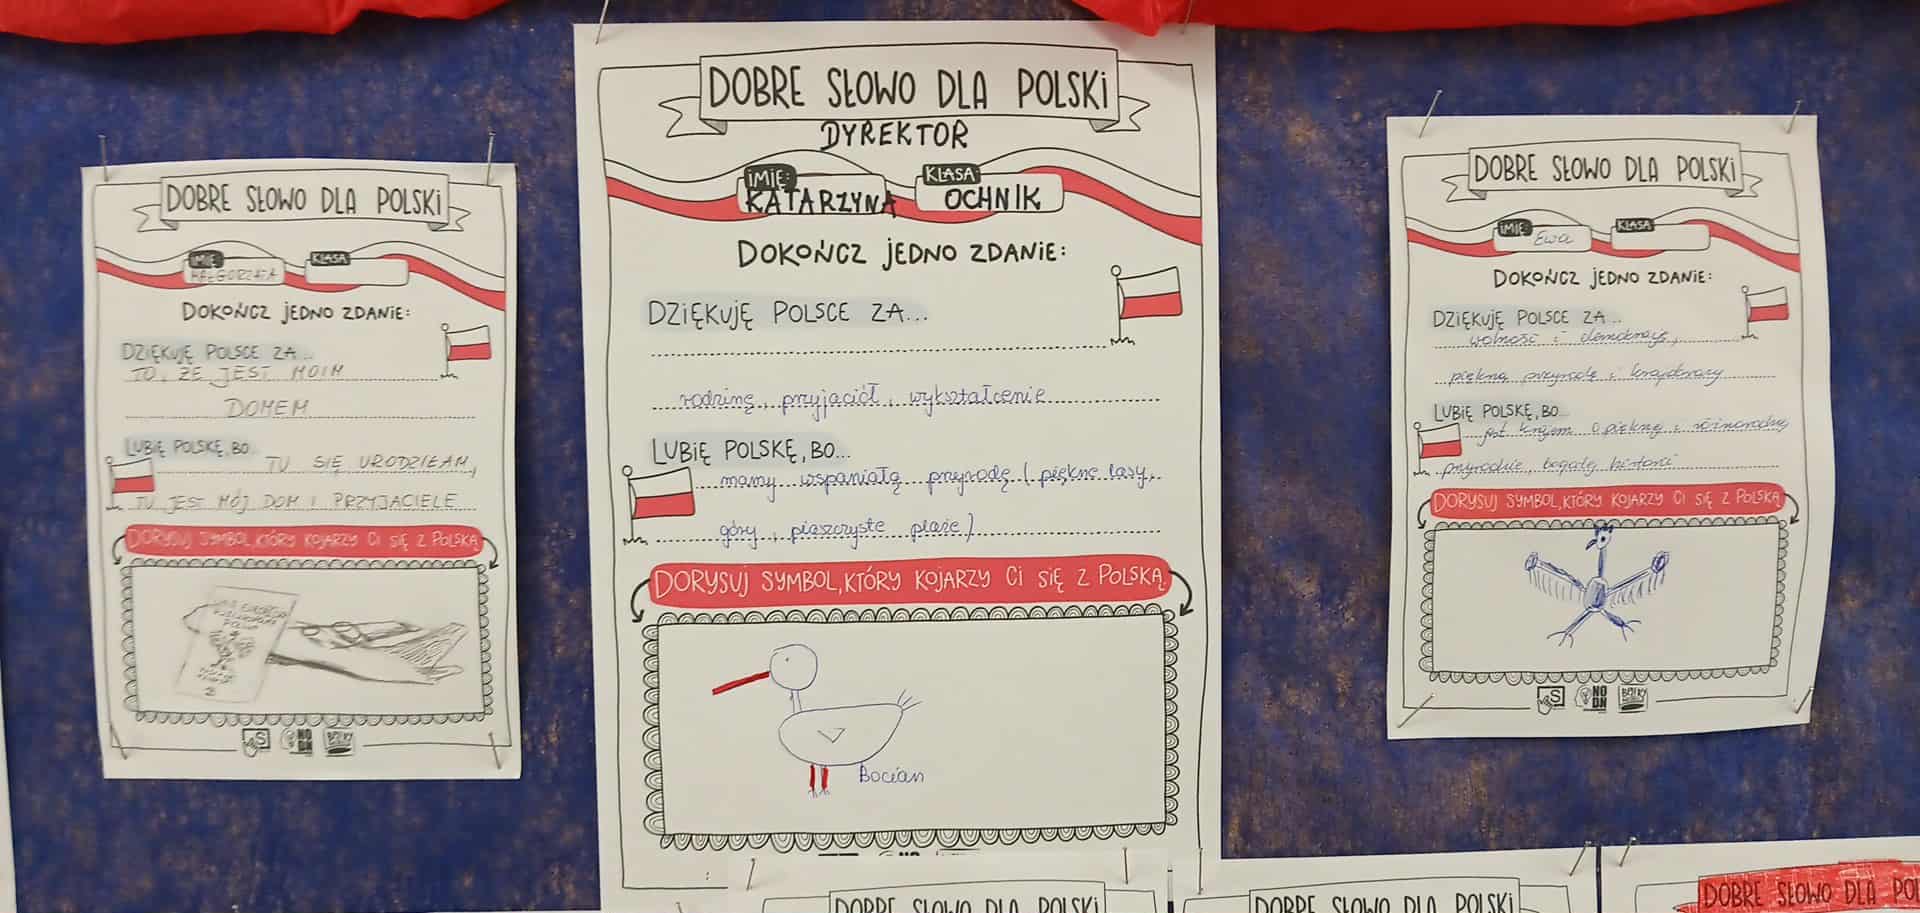 DOBRE SŁOWO DLA POLSKI
IMIĘ:
KLASA
MAŁGORZATA
DOKOŃCZ JEDNO ZDANIE:
DZIĘKUJĘ POLSCE ZA...
TO, ŻE JEST MOIM
DOMEM
LUBIĘ POLSKĘ, BO...
TU SIĘ URODZIŁAM,
TU JEST MÓJ DOM I PRZYJACIELE
DORYSUJ SYMBOL, KTÓRY KOJARZY CI SIĘ Z POLSKĄ
DOBRE SŁOWO DLA POLSKI
DYREKTOR
IMIĘ:
KLASA:
KATARZYNA
OCHNIK
DOKOŃCZ JEDNO ZDANIE:
DZIĘKUJĘ POLSCE ZA...
rodzinę, przyjaciół, wykształcenie
LUBIĘ POLSKĘ, BO...
mamy wspaniałą przyrodę (piękne lasy,
góry, piaszczyste plaże)
DORYSUJ SYMBOL, KTÓRY KOJARZY CI SIĘ Z POLSKĄ
Bocian
DOBRE SŁOWO DLA POLSKI
IMIĘ:
Ewa
KLASA
DOKOŃCZ JEDNO ZDANIE:
DZIĘKUJĘ POLSCE ZA...
wolność i demokrację,
piękną przyrodę i krajobrazy
LUBIĘ POLSKĘ, BO...
jest krajem o pięknej i różnorodnej
przyrodzie, bogatej historii
DORYSUJ SYMBOL, KTÓRY KOJARZY CI SIĘ Z POLSKĄ
DOBRE SŁOWO DLA POLSKI
DOBRE SŁOWO DLA POLSKI
DOBRE SŁOWO DLA POL